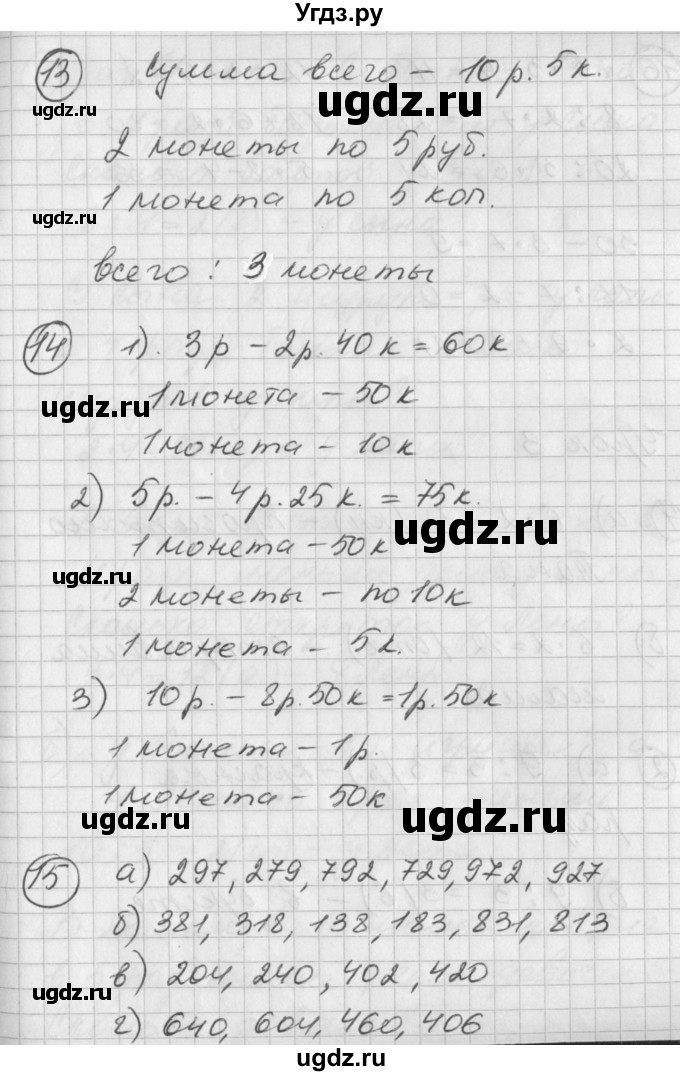 Угдз.ру
13 Сумма всего – 10 р. 5 к.
ugdz.ru ugdz.ru
2 монеты по 5 руб.
1 монета по 5 коп.
ugdz.ru
всего : 3 монеты
14 1). 3р – 2р. 40 к = 60к
1 монета – 50к
ugdz.ru
1 монета – 10 к
2) 5р. – 4р. 25 к. = 75к.
ugdz.ru
1 монета – 50к
ugdz.ru
2 монеты – по 10к
1 монета – 5 к.
3) 10р. – 8р. 50к = 1р. 50к
ugdz.ru
1 монета – 1р.
1 монета – 50к
ugdz.ru ugdz.ru
15 а) 297, 279, 792, 729, 972, 927
б) 381, 318, 138, 183, 831, 813
в) 204, 240, 402, 420
ugdz.ru
г) 640, 604, 460, 406
ugdz.ru